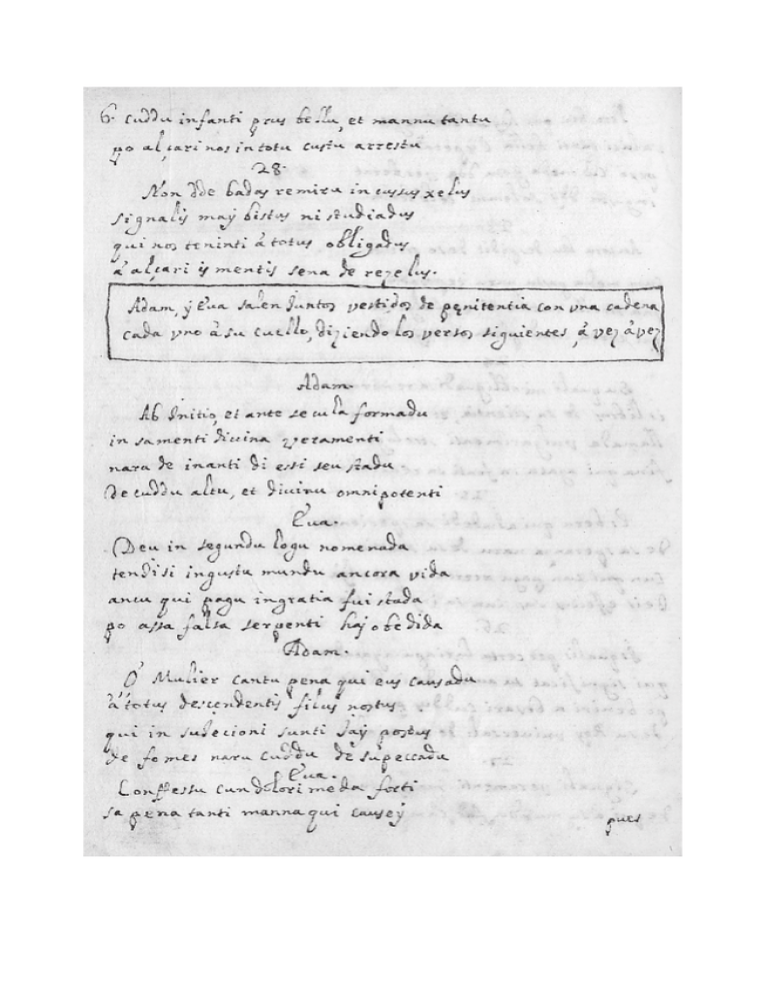 6. Cuddu infanti prus bellu, et mannu tantu
po alçari nos in totu custu arrestu
28.
Non dde badas remiru in cussus xelus
signalis maÿ bistus ni studiadus
qui nos teninti â totus obligadus
â alçari is mentis sena de rezelus.
Adam, ÿ Eva salen Juntos vestidos de penitentia con vna cadena
cada vno â su cuello, diziendo los versos siguientes, â vez â vez
Adam.
Ab Initio, et ante secula formadu
in sa menti divina veramenti
naru de inanti di essi seu stadu
De cuddu altu, et divinu omnipotenti
Eva.
Deu in segundu logu nomenada
tendisi in gustu mundu ancora vida
ancu qui pagu in gratia fui stada
po assa falsa serpenti haj obedida
Adam.
O' Mulier cantu pena qui eus causadu
â totus descendentis fillus nostus
qui in sudecioni sunti Jaÿ postus
de femes naru cuddu de su peccadu
Eva.
Confessu cun dolori meda forti
sa pena tanti manna qui causej
pues